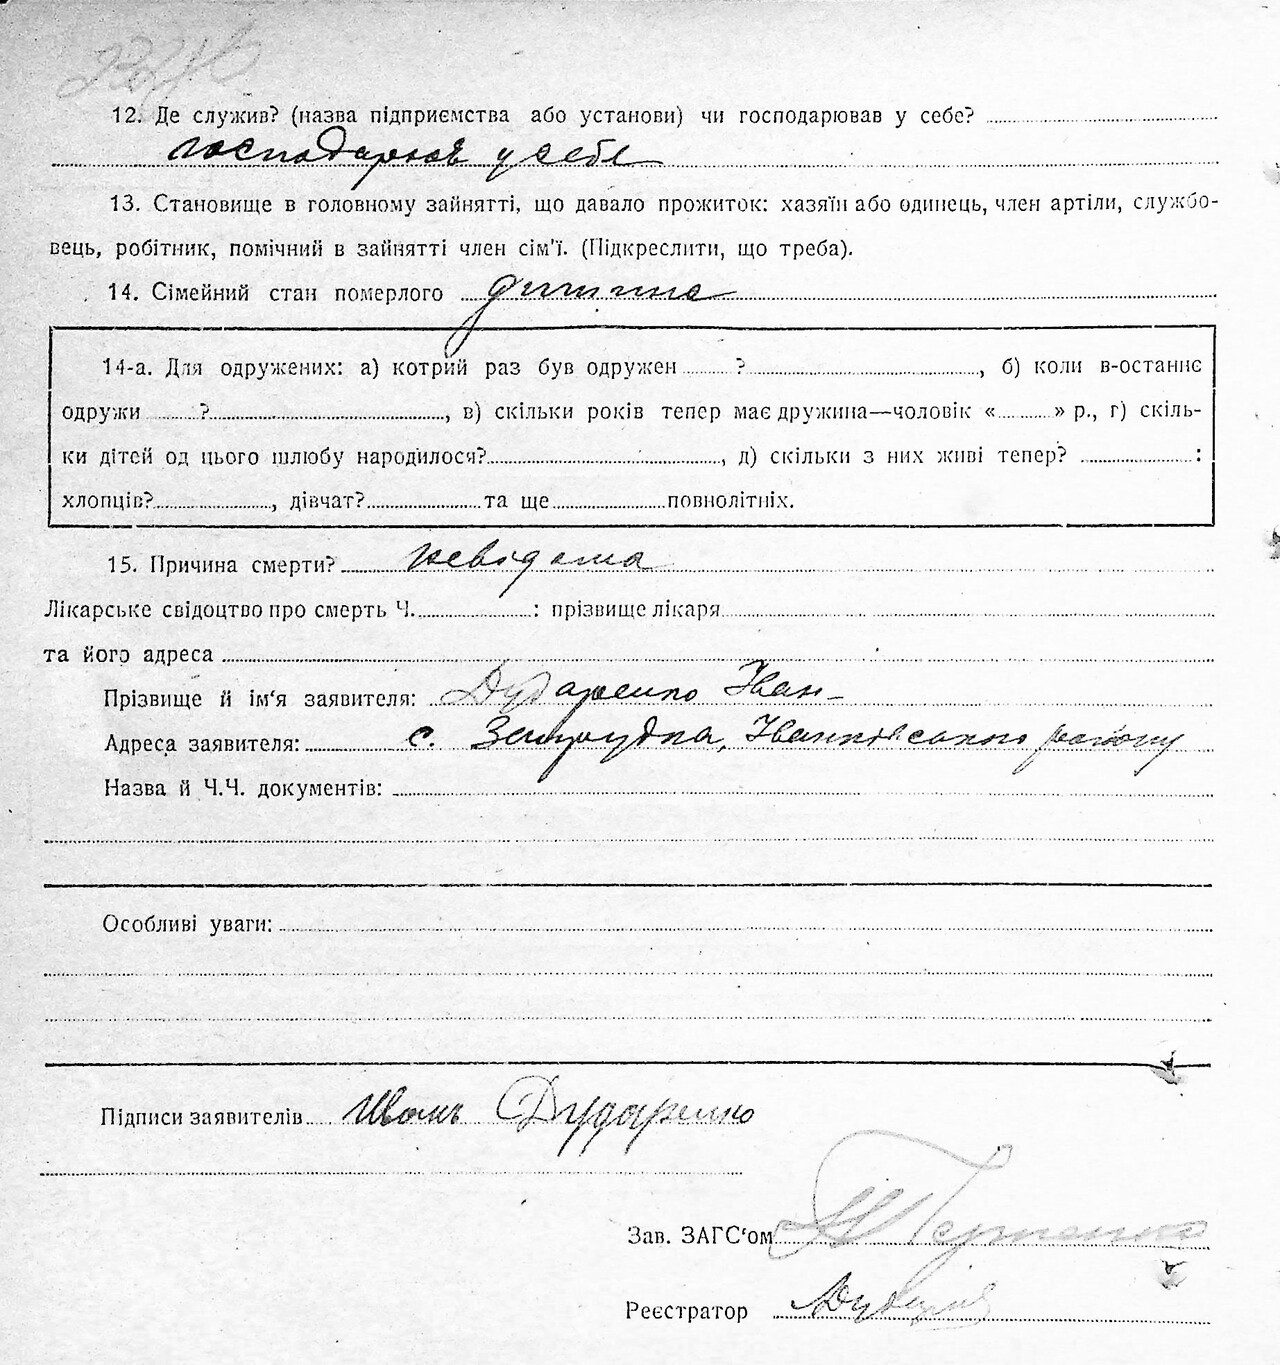 12. Де служив? (назва підприємства або установи) чи господарював у себе?
господарював у себе
13. Становище в головному зайнятті, що давало прожиток: хазяїн або одинець, член артіли, службо-
вець, робітник, помічний в зайнятті член сім'ї. (Підкреслити, що треба).
14. Сімейний стан померлого дитина
14-а. Для одружених: а) котрий раз був одружен ? , б) коли в-останнє
одружи ? , в) скільки років тепер має дружина—чоловік « » р., г) скіль-
ки дітей од цього шлюбу народилося? , д) скільки з них живі тепер? :
хлопців? , дівчат? та ще повнолітніх.
15. Причина смерти? невідома
Лікарське свідоцтво про смерть Ч. : прізвище лікаря
та його адреса
Прізвище й ім'я заявителя: Дударенко Іван
Адреса заявителя: с. Запрудка, Іванківського району
Назва й Ч.Ч. документів:
Особливі уваги:
Підписи заявителів Иван Дударенко
Зав. ЗАГС'ом
Реєстратор